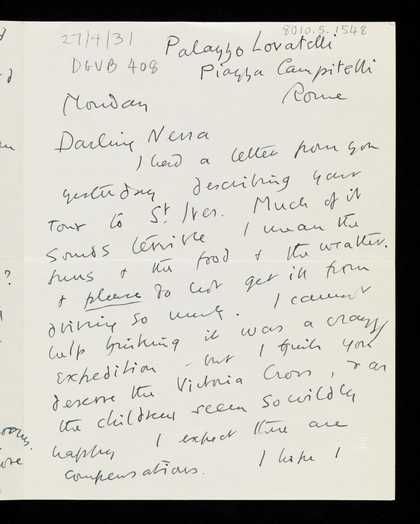 27/4/31 8010.5.1548
Palazzo Lovatelli
DGVB 408 Piazza Campitelli
Monday Rome
Darling Nessa
I had a letter from you
yesterday describing your
tour to St Ives. Much of it
sounds terrible I mean the
inns + the food + the weather.
+ please do not get ill from
driving so much. I cannot
help thinking it was a crazy
expedition - but I think you
deserve the Victoria Cross, + as
the children seem so wildly
happy I expect there are
compensations. I hope I